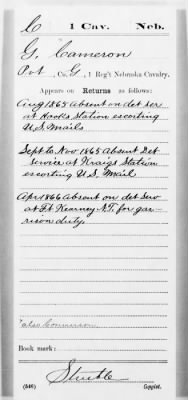 C 1 Cav. Neb.
G. Cameron
Pvt, Co. G, 1 Reg't Nebraska Cavalry.
Appears on Returns as follows:
Aug 1865 Absent on det ser
at Hooks Station escorting
U.S. Mails
Sept. to Nov 1865 Absent Det
Service at Kraigs Station
escorting U.S. Mail
Apr 1866 Absent on det Serv
at Ft. Kearney N.T. for gar-
rison duty
Book mark:
(546) Copyist.